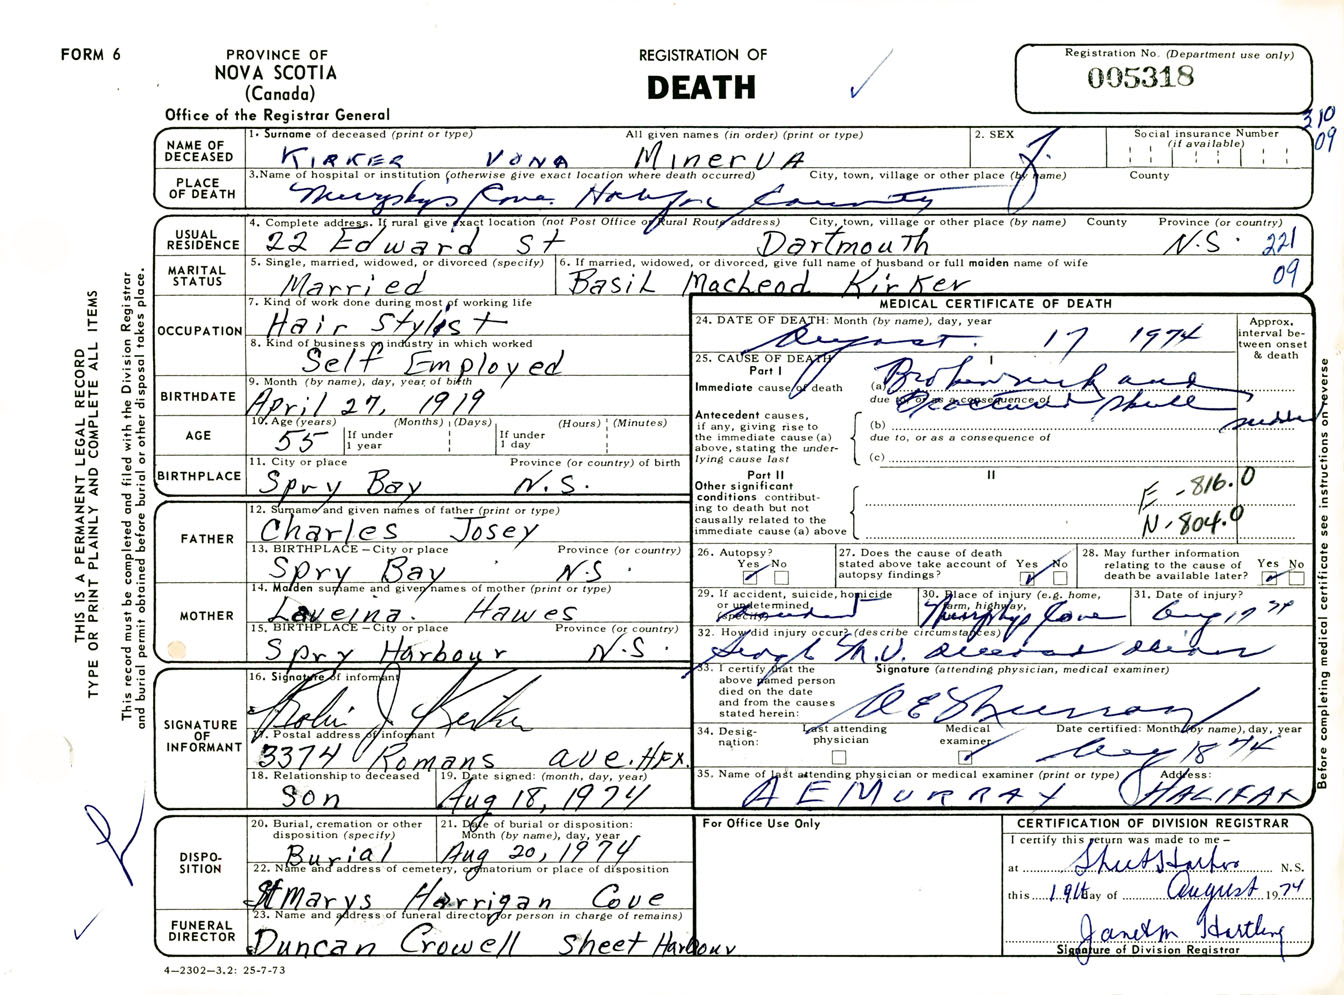 FORM 6
PROVINCE OF
NOVA SCOTIA
(Canada)
Office of the Registrar General
REGISTRATION OF
DEATH
Registration No. (Department use only)
005318
310
09
NAME OF DECEASED
1. Surname of deceased (print or type) All given names (in order) (print or type)
KIRKER VONA MINERVA
2. SEX
F.
Social insurance Number
(if available)
PLACE OF DEATH
3. Name of hospital or institution (otherwise give exact location where death occurred) City, town, village or other place (by name) County
Murphys Cove. Halifax County
USUAL RESIDENCE
4. Complete address. If rural give exact location (not Post Office or Rural Route address) City, town, village or other place (by name) County Province (or country)
22 Edward St Dartmouth N.S. 221
09
MARITAL STATUS
5. Single, married, widowed, or divorced (specify)
Married
6. If married, widowed, or divorced, give full name of husband or full maiden name of wife
Basil Macleod Kirker
OCCUPATION
7. Kind of work done during most of working life
Hair Stylist
8. Kind of business or industry in which worked
Self Employed
BIRTHDATE
9. Month (by name), day, year of birth
April 27, 1919
AGE
10. Age (years) (Months) (Days) (Hours) (Minutes)
55 If under 1 year If under 1 day
BIRTHPLACE
11. City or place Province (or country) of birth
Spry Bay N.S.
FATHER
12. Surname and given names of father (print or type)
Charles Josey
13. BIRTHPLACE – City or place Province (or country)
Spry Bay N.S.
MOTHER
14. Maiden surname and given names of mother (print or type)
Laveina. Hawes
15. BIRTHPLACE – City or place Province (or country)
Spry Harbour N.S.
SIGNATURE OF INFORMANT
16. Signature of informant
Robin J Kirker
17. Postal address of informant
3374 Romans ave. HFX.
18. Relationship to deceased
Son
19. Date signed: (month, day, year)
Aug 18, 1974
DISPOSITION
20. Burial, cremation or other disposition (specify)
Burial
21. Date of burial or disposition: Month (by name), day, year
Aug 20, 1974
22. Name and address of cemetery, crematorium or place of disposition
St Marys Harrigan Cove
FUNERAL DIRECTOR
23. Name and address of funeral director (or person in charge of remains)
Duncan Crowell Sheet Harbour
4—2302—3.2: 25-7-73
MEDICAL CERTIFICATE OF DEATH
24. DATE OF DEATH: Month (by name), day, year
August. 17 1974
Approx. interval between onset & death
25. CAUSE OF DEATH
Part I
I
Immediate cause of death
(a) Broken neck and
due to, or as a consequence of
Fractured skull
sudden
Antecedent causes, if any, giving rise to the immediate cause (a) above, stating the underlying cause last
(b)
due to, or as a consequence of
(c)
Part II
II
Other significant conditions contributing to death but not causally related to the immediate cause (a) above
E -816.0
N-804.0
26. Autopsy?
Yes No
27. Does the cause of death stated above take account of autopsy findings?
Yes No
28. May further information relating to the cause of death be available later?
Yes No
29. If accident, suicide, homicide or undetermined (specify)
accident
30. Place of injury (e.g. home, farm, highway,
Murphys Cove
31. Date of injury?
Aug 17 74
32. How did injury occur? (describe circumstances)
Single M.V. deceased driver
33. I certify that the above named person died on the date and from the causes stated herein:
Signature (attending physician, medical examiner)
A E Murray
34. Designation:
Last attending physician
Medical examiner
Date certified: Month (by name), day, year
Aug 18 74
35. Name of last attending physician or medical examiner (print or type) Address:
A E MURRAY HALIFAX
For Office Use Only
CERTIFICATION OF DIVISION REGISTRAR
I certify this return was made to me –
at Sheet Harbour N.S.
this 19th day of August 1974
Janet M Hartling
Signature of Division Registrar
THIS IS A PERMANENT LEGAL RECORD
TYPE OR PRINT PLAINLY AND COMPLETE ALL ITEMS
This record must be completed and filed with the Division Registrar
and burial permit obtained before burial or other disposal takes place.
Before completing medical certificate see instructions on reverse